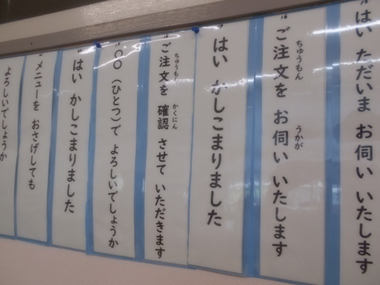 "はい ただいま お伺い いたします
"ご注文を お伺い いたします
"はい かしこまりました
"ご注文を 確認 させて いただきます
"〇〇（ひとつ）で よろしいでしょうか
"はい かしこまりました
"メニューを おさげしても
よろしいでしょうか